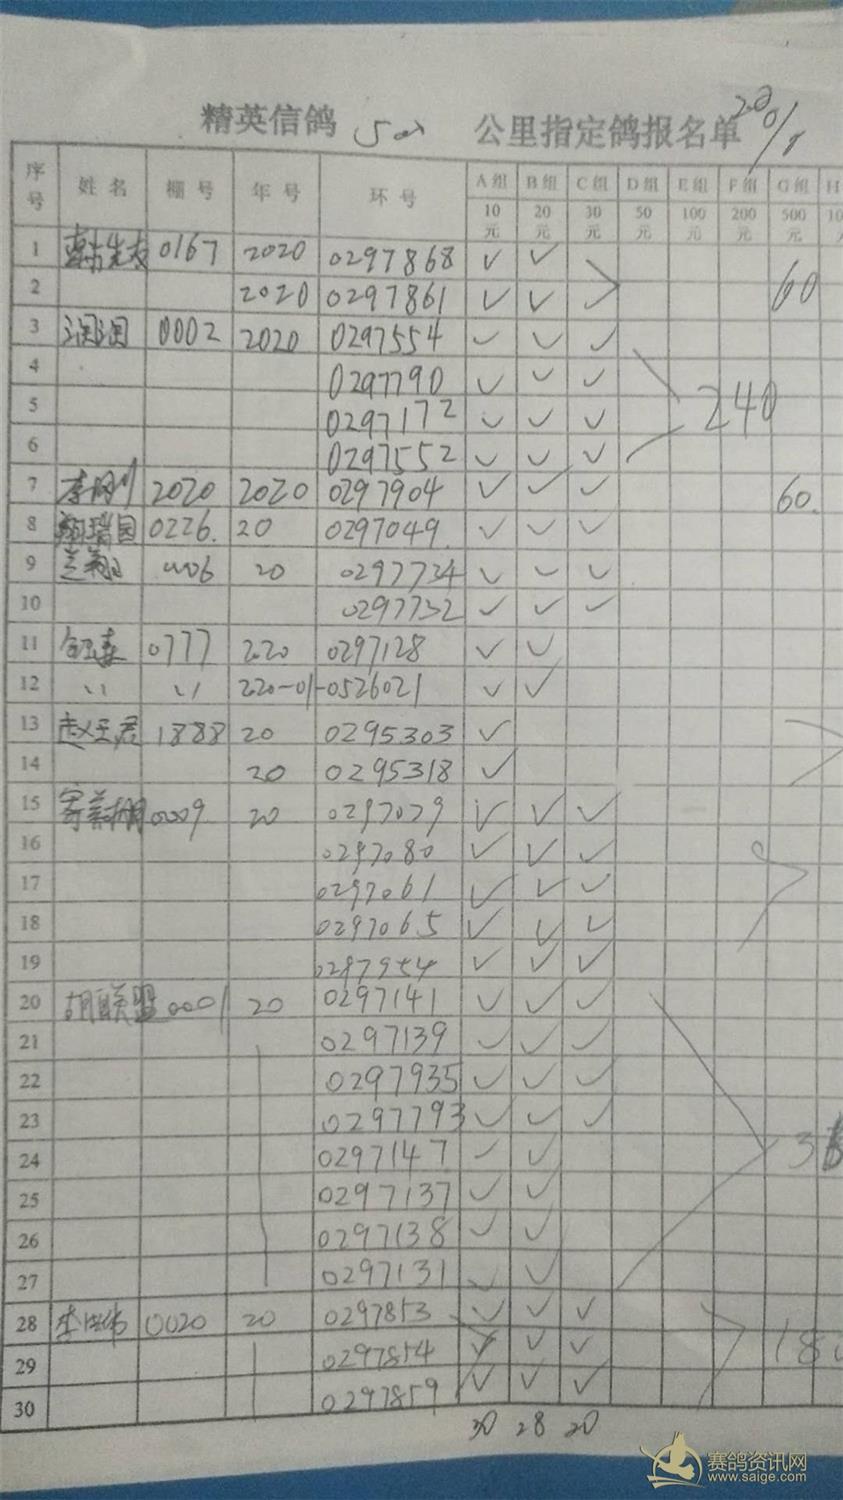 精英信鸽 500 公里指定鸽报名单
序号 姓名 棚号 年号 环号 A组 B组 C组 D组 E组 F组 G组 H
10元 20元 30元 50元 100元 200元 500元 10
1 0167 2020 0297868 ✓ ✓
2 2020 0297861 ✓ ✓ ✓ 60
3 润润 0002 2020 0297554 ✓ ✓ ✓
4 0297790 ✓ ✓ ✓
5 0297172 ✓ ✓ ✓ 240
6 0297552 ✓ ✓ ✓
7 2020 2020 0297904 ✓ ✓ ✓ 60.
8 0226. 20 0297049. ✓ ✓ ✓
9 20 0297734 ✓ ✓ ✓
10 0297732 ✓ ✓ ✓
11 0777 220 0297128 ✓ ✓
12 220-01-0526021 ✓ ✓
13 赵玉君 1888 20 0295303 ✓
14 20 0295318 ✓
15 0009 20 0297079 ✓ ✓ ✓
16 0297080 ✓ ✓ ✓
17 0297061 ✓ ✓ ✓
18 0297065 ✓ ✓ ✓
19 0297954 ✓ ✓ ✓
20 胡联盟 0001 20 0297141 ✓ ✓ ✓
21 0297139 ✓ ✓ ✓
22 0297935 ✓ ✓ ✓
23 0297793 ✓ ✓ ✓
24 0297147 ✓ ✓
25 0297137 ✓ ✓
26 0297138 ✓ ✓
27 0297131 ✓ ✓
28 0020 20 0297853 ✓ ✓ ✓
29 0297854 ✓ ✓ ✓ 180
30 0297859 ✓ ✓ ✓
30 28 20
赛鸽资讯网
www.saige.com